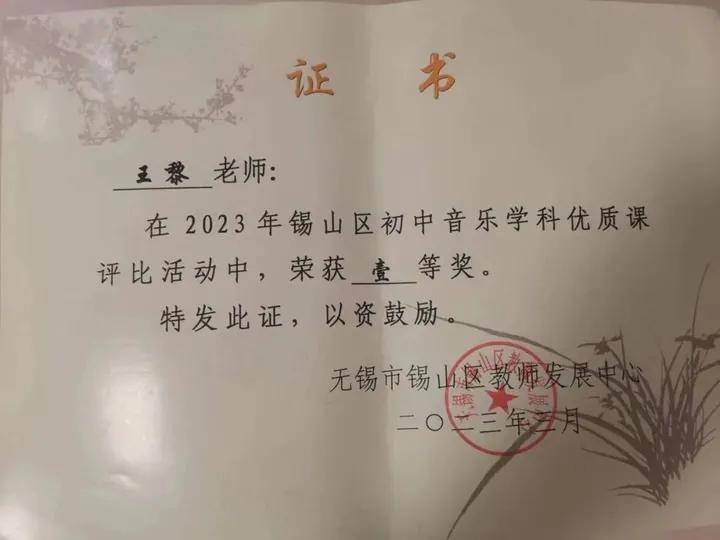 证书
王黎老师：
在2023年锡山区初中音乐学科优质课
评比活动中，荣获壹等奖。
特发此证，以资鼓励。
无锡市锡山区教师发展中心
二〇二三年三月